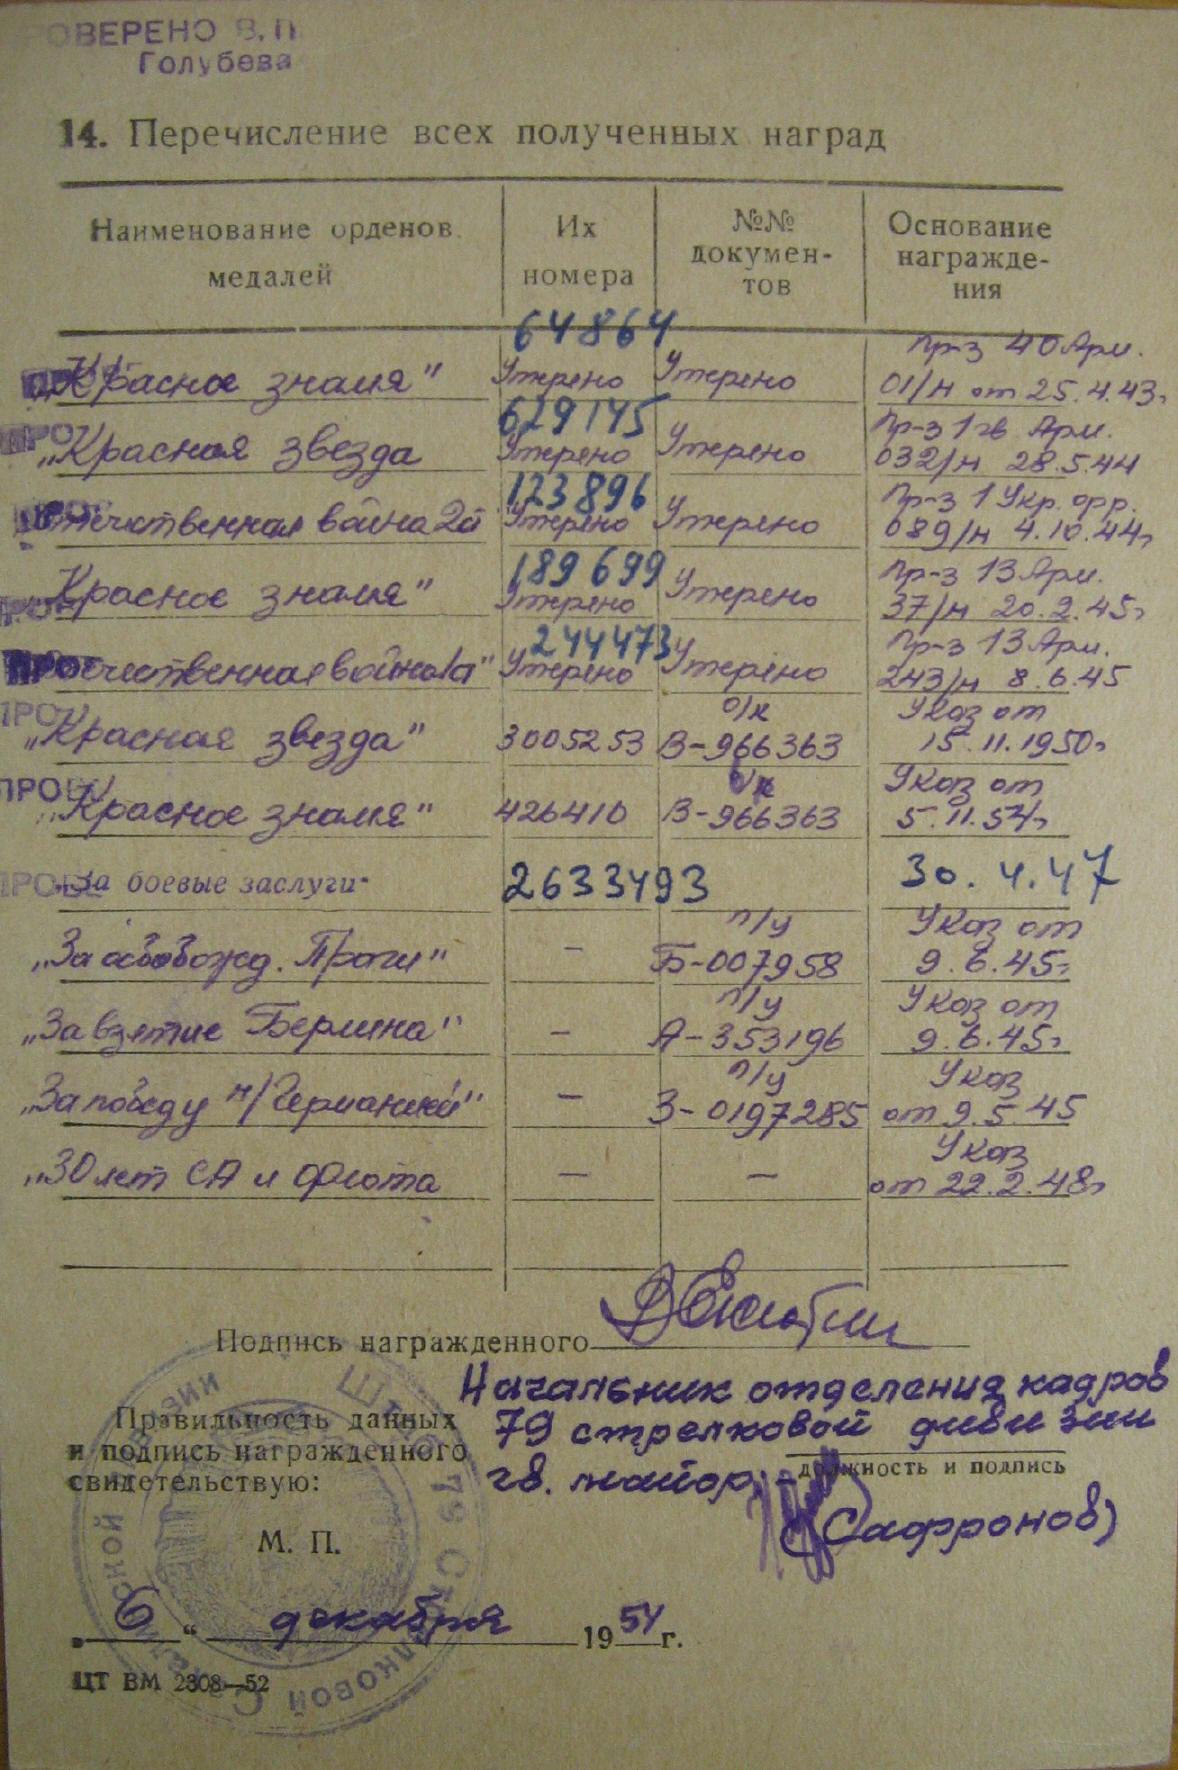 ПРОВЕРЕНО В. П.
Голубева
14. Перечисление всех полученных наград
Наименование орденов, медалей
Их номера
№№ документов
Основание награждения
64864 Пр-з 40 Арм.
„Красное знамя" Утеряно Утеряно 01/н от 25.4.43г
629145 Пр-з 1 гв Арм.
„Красная звезда Утеряно Утеряно 032/н 28.5.44
123896 Пр-з 1 Укр. фр.
Отечественная война 2й Утеряно Утеряно 089/н 4.10.44г
189699 Пр-з 13 Арм.
Красное знамя" Утеряно Утеряно 37/н 20.2.45г
244473 Пр-з 13 Арм.
Отечественная война 1й" Утеряно Утеряно 243/н 8.6.45
о/к Указ от
„Красная звезда" 3005253 В-966363 15.11.1950г
о/к Указ от
„Красное знамя" 426410 В-966363 5.11.54г
„За боевые заслуги" 2633493 30.4.47
п/у Указ от
„За освобожд. Праги" — Б-007958 9.6.45г
п/у Указ от
„За взятие Берлина" — А-353196 9.6.45г
п/у Указ
„За победу н/Германией" — З-0197285 от 9.5.45
Указ
„30 лет СА и Флота — — от 22.2.48г
Подпись награжденного
Начальник отделения кадров
Правильность данных 79 стрелковой дивизии
и подпись награжденного
должность и подпись
свидетельствую: гв. майор
М. П. (Сафронов)
„6" декабря 1954 г.
ЦТ ВМ 2308—52